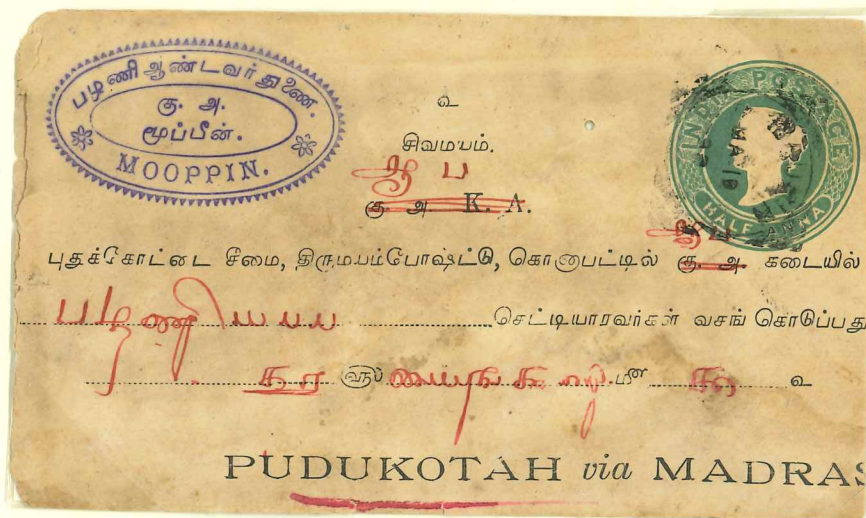 பழனி ஆண்டவர் துணை.
கு. அ.
மூப்பீன்.
MOOPPIN.
INDIA POSTAGE
HALF ANNA
உ
சிவமயம்.
கு அ K. A.
புதுக்கோட்டை சீமை, திருமயம்போஷ்ட்டு, கொனாபட்டில் கு அ கடையில்
பழனியப்ப செட்டியாரவர்கள் வசங் கொடுப்பது
ளு மீ உ
PUDUKOTAH via MADRAS